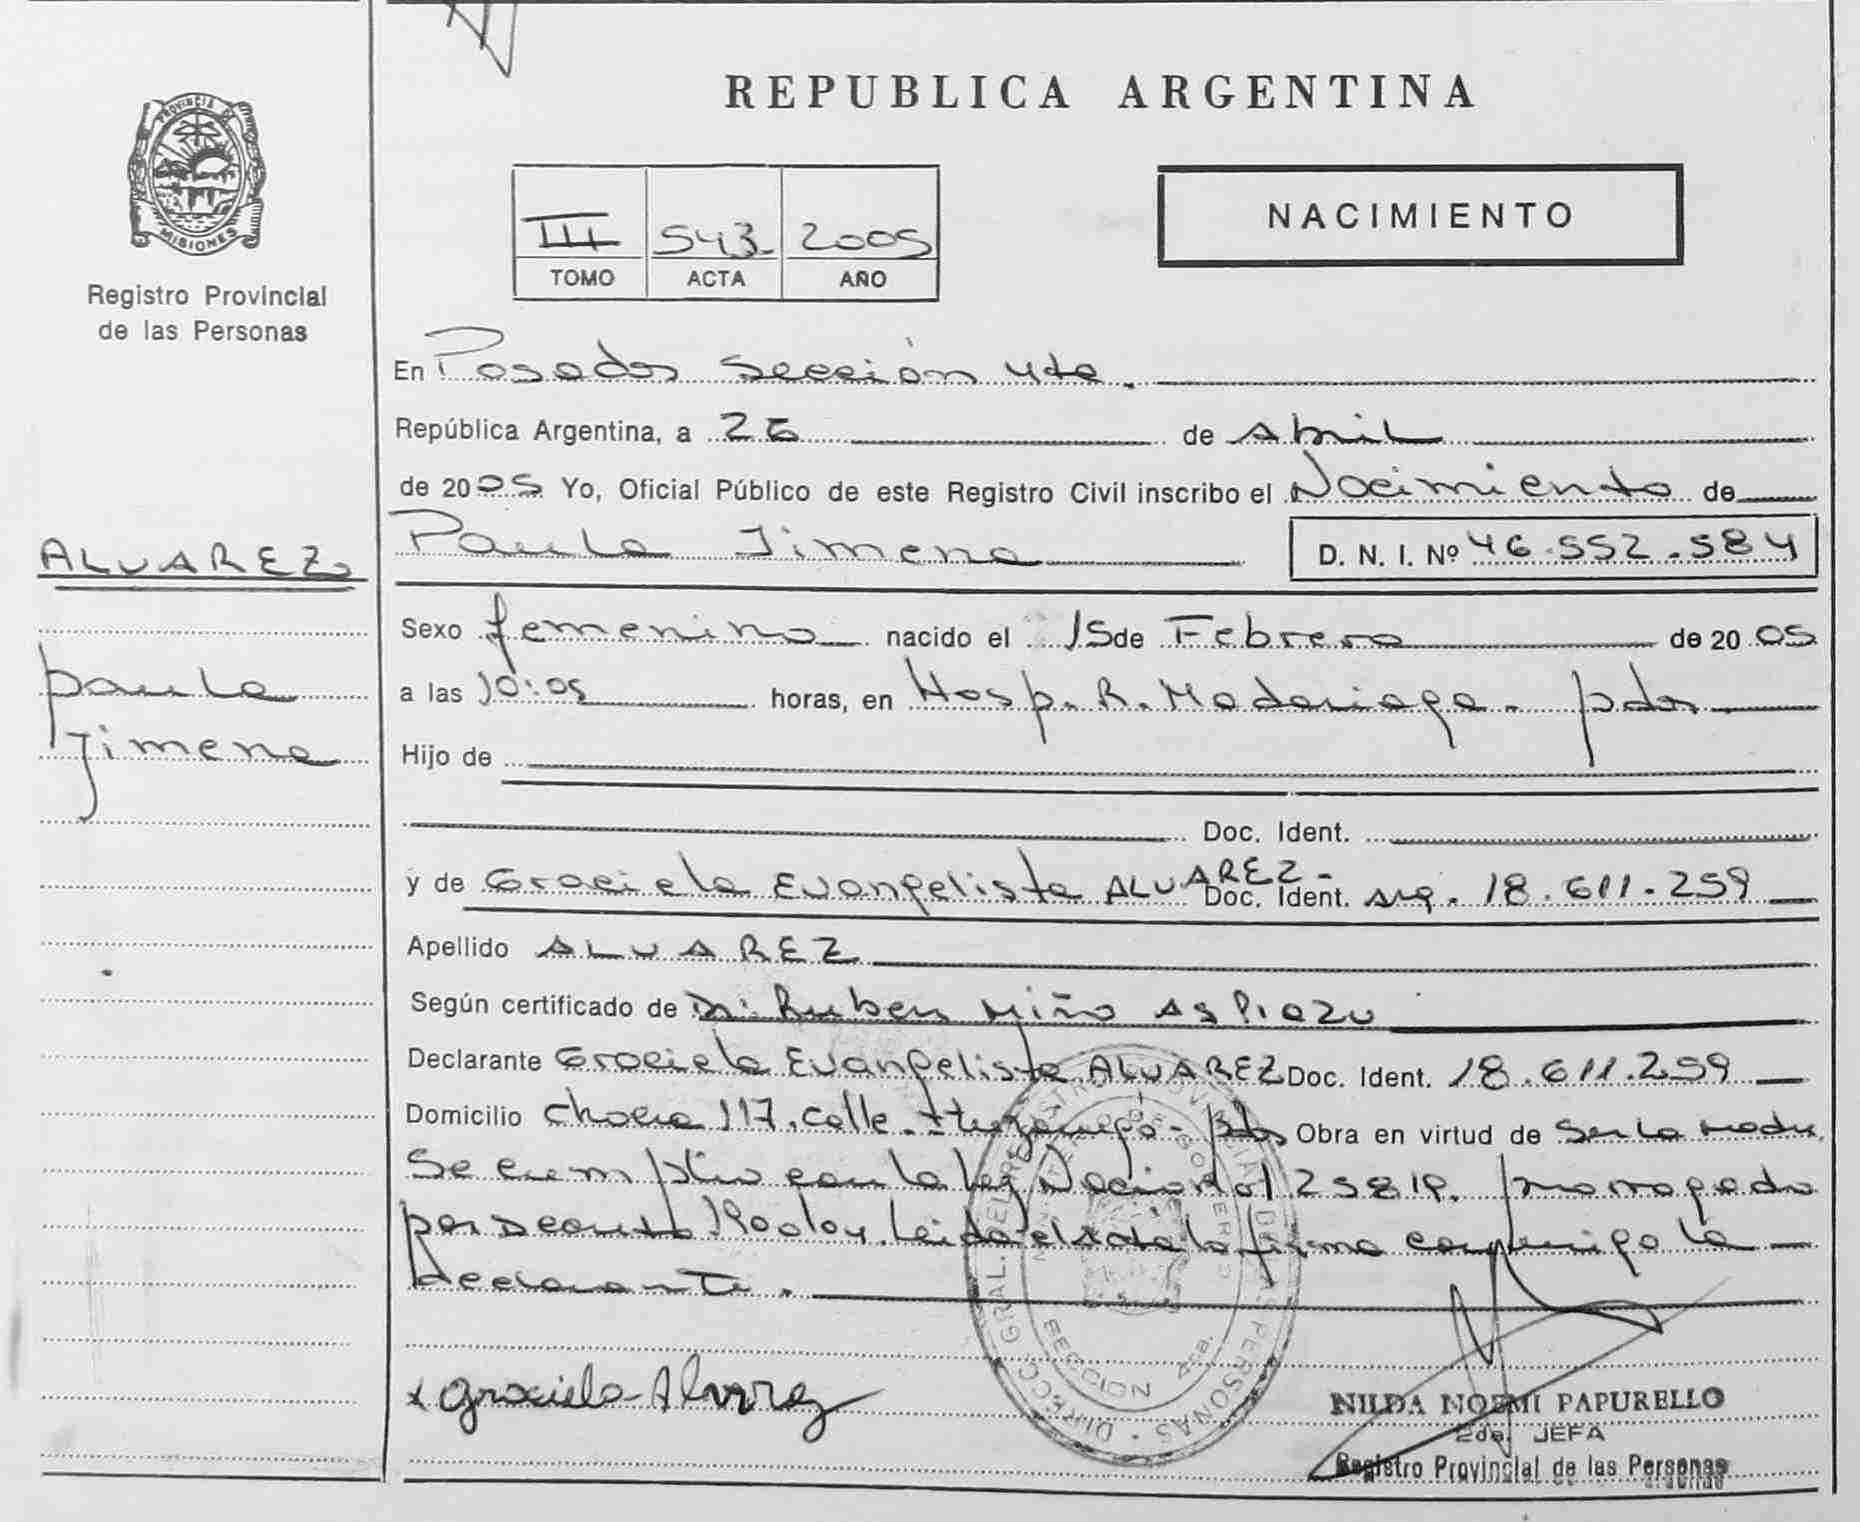 PROVINCIA DE
MISIONES
Registro Provincial
de las Personas
ALVAREZ
Paula
Jimena
REPUBLICA ARGENTINA
III 543 2005
TOMO ACTA AÑO
NACIMIENTO
En Posadas sección 4ta.
República Argentina, a 26 de Abril
de 2005 Yo, Oficial Público de este Registro Civil inscribo el Nacimiento de
Paula Jimena D. N. I. Nº 46.552.584
Sexo femenino nacido el 15 de Febrero de 2005
a las 10:05 horas, en Hosp. R. Madariaga - pdas
Hijo de
Doc. Ident.
y de Graciela Evangelista ALVAREZ - Doc. Ident. arg. 18.611.259
Apellido ALVAREZ
Según certificado de Dr: Ruben Miño Aspiazu
Declarante Graciela Evangelista ALVAREZ Doc. Ident. 18.611.259
Domicilio chacra 117. calle Ituzaingó - Pdas Obra en virtud de Ser la madre.
Se cumplio con la ley Nacional 25819. prorrogado
por Decreto la firma conmigo la
declarante.
Graciela Alvarez
DIRECC. GRAL. DEL REGISTRO PROVINCIAL DE LAS PERSONAS
SECCION 4ta.
NILDA NOEMI PAPURELLO
2da. JEFA
Registro Provincial de las Personas